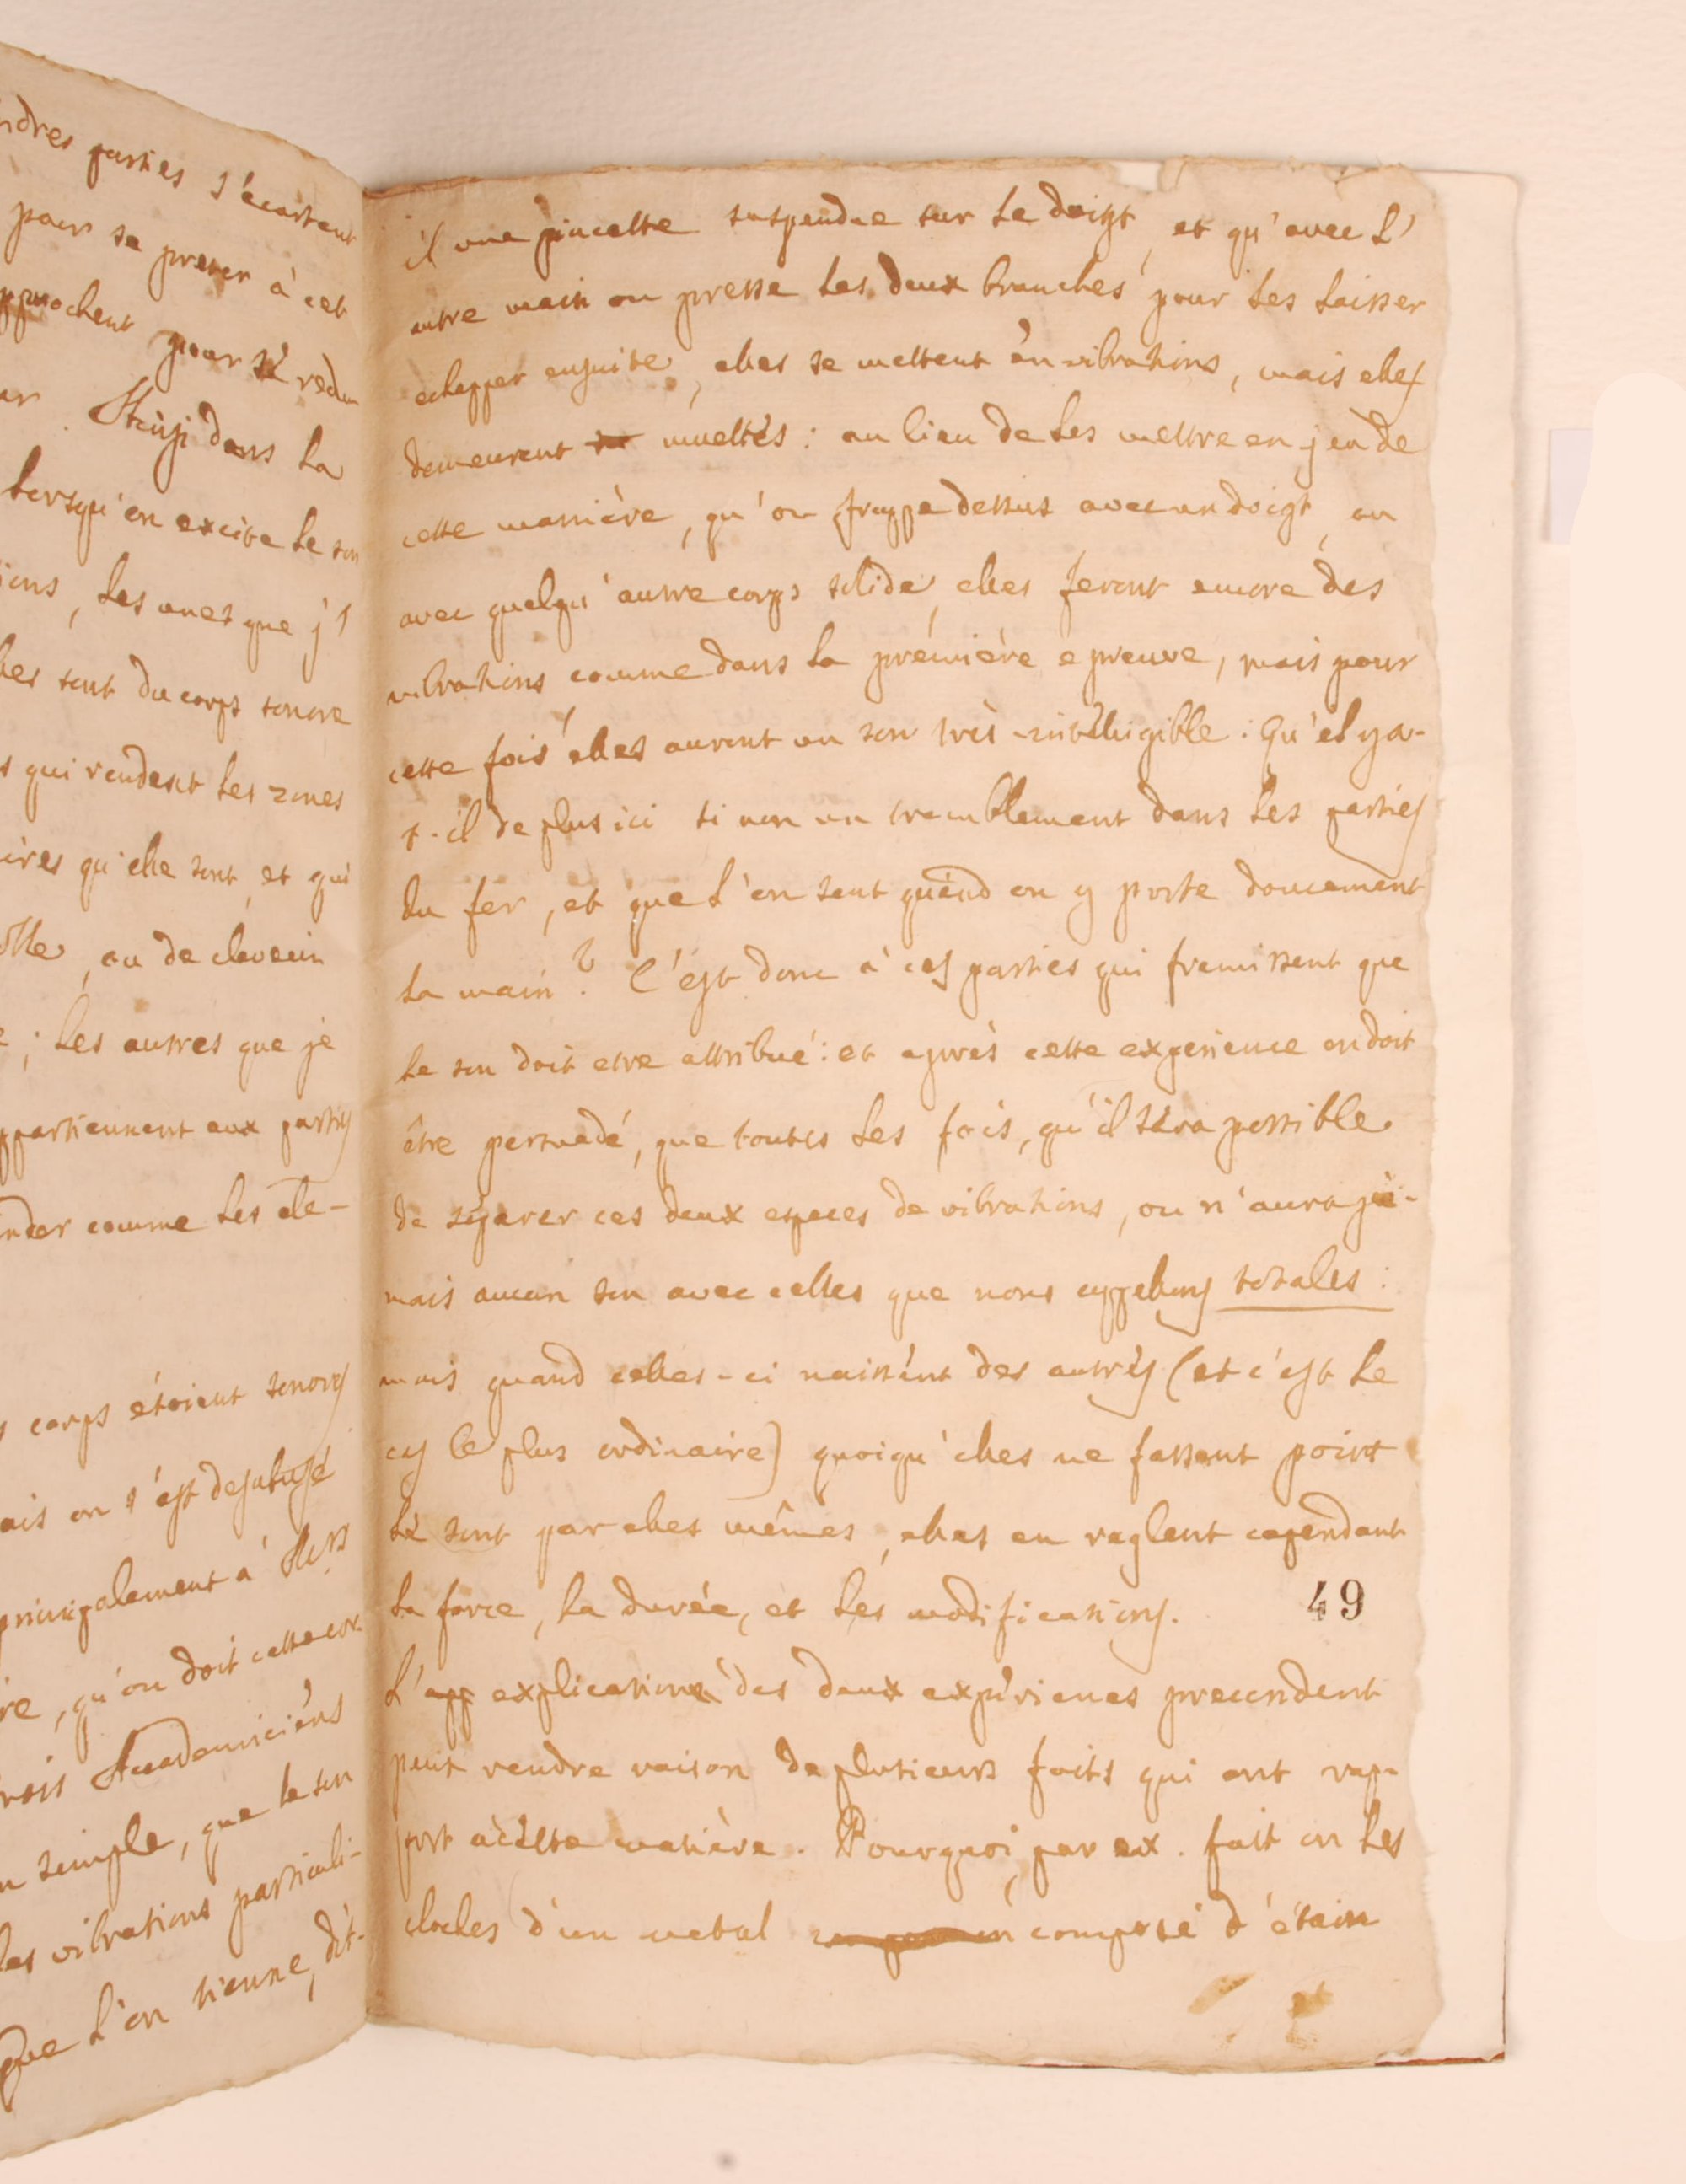 ndres parties s'écartent
pour se preter à cet
pprochent pour sé redui
Ainsi dans la
lorsqu'on excite le son
ions, les unes que j'
les sont du corps sonore
s qui rendent les zones
ires qu'elle sont, et qui
ou de clavecin
e; les autres que je
ppartiennent aux parties
nder comme les éle-
s corps étoient sonores
ais on s'est desabusé
principalement à Mrs
re, qu'on doit cette cor-
rois Academiciéns
n simple, que le son
les vibrations particuli-
Que l'on tienne, dit-
il une pincette suspendue sur le doigt, et qu'avec l'
autre main on presse les deux branches pour les laisser
echapper ensuite, elles se mettent én vibrations, mais elles
demeurent muettés: au lieu de les mettre en jeu de
cette manière, qu'on frappe dessus avec un doigt, ou
avec quelqu'autre corps solide, elles feront encore dés
vibrations comme dans la prémière epreuve, mais pour
cette fois elles auront un son très-intélligible: Qu'el y a-
t-il de plus ici si non un tremblement dans les parties
du fer, et que l'on sent quand on y porte doucemént
la main? C'est donc à ces parties qui fremissent que
le son doit etre attribué: et après cette experience on doit
être persuadé, que toutes les fois, qu'il séra possible
de séparer ces deux especes de vibrations, on n'aura ja-
mais aucun son avec celles que nous appellons totales:
mais quand celles-ci naissént des autrés (et c'est le
cas le plus ordinaire) quoiqu'elles ne fassent point
lé sont par elles mêmes, elles en reglent cependant
la force, la durée, et les modifications.
49
L'app explications des deux expériences precendent
peut rendre raison de plusieurs faits qui ont rap-
port à cétte matière. Pourquoi, par ex. fait on les
cloches d'un metal composé d'étain